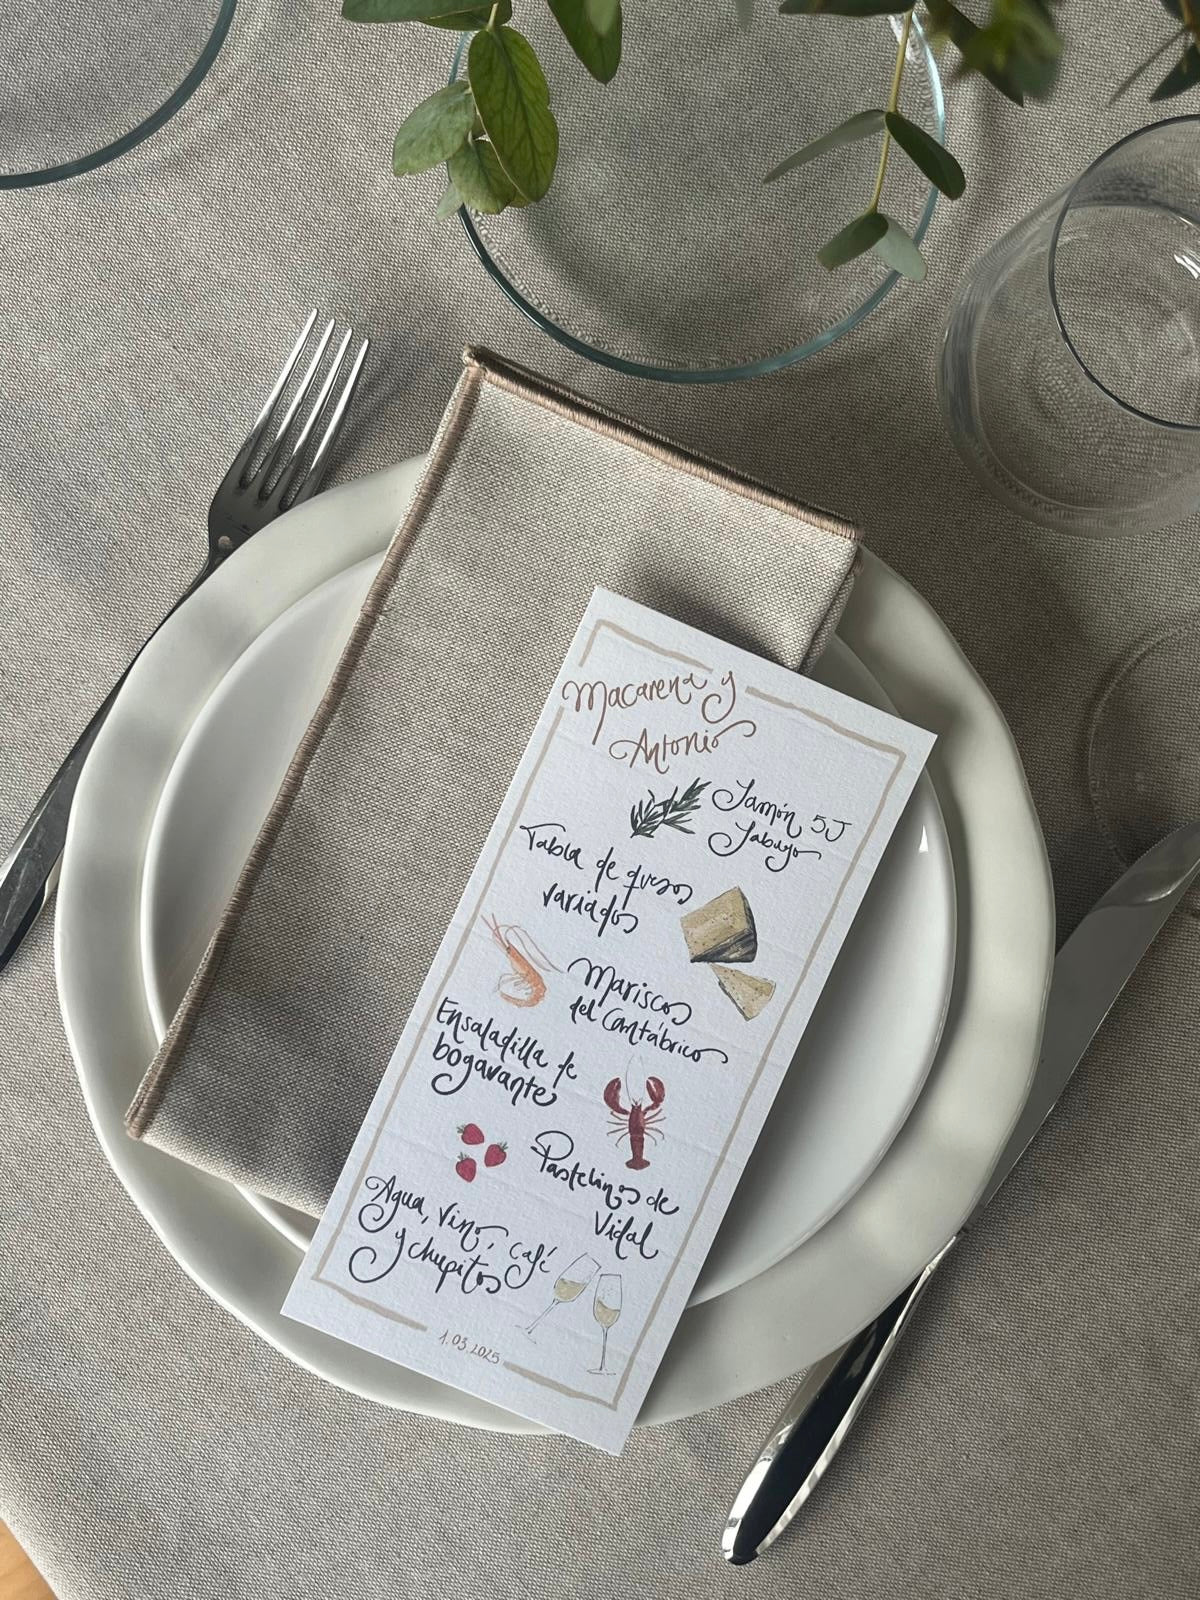 Macarena y
Antonio
Jamón 5J
Jabugo
Tabla de quesos
variados
Mariscos
del Cantábrico
Ensaladilla de
bogavante
Pastelinos de
Vidal
Agua, vino, café
y chupitos
1.03.2025